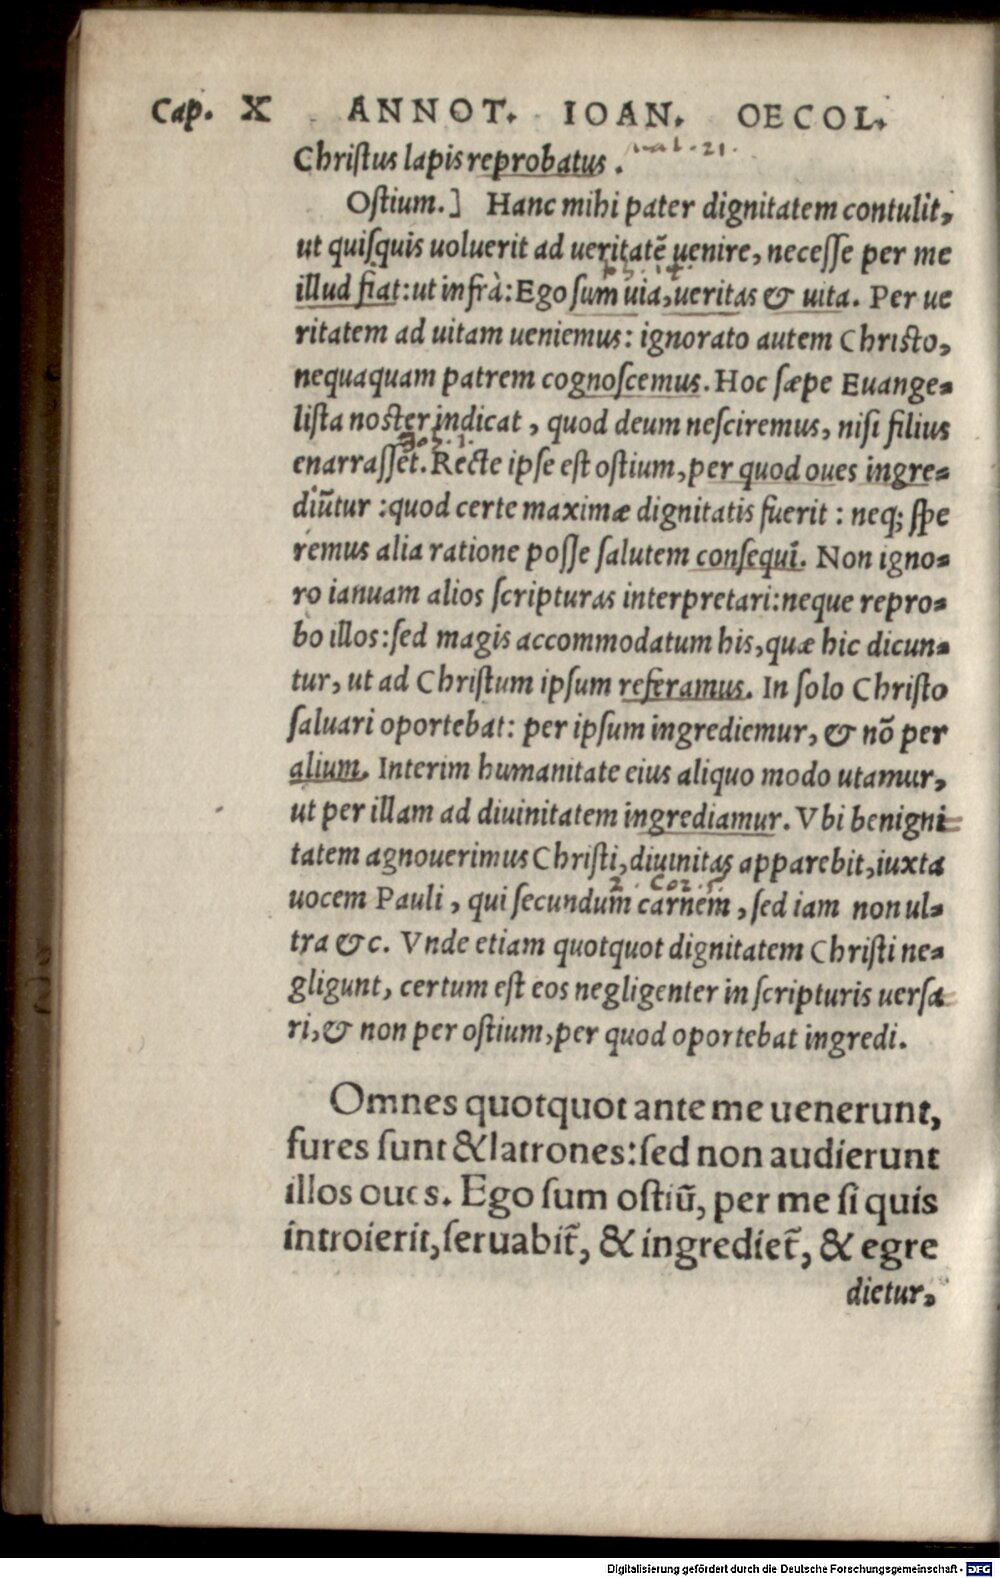 Cap. X ANNOT. IOAN. OECOL.
Christus lapis reprobatus. Mat. 21.
Ostium.] Hanc mihi pater dignitatem contulit,
ut quisquis uoluerit ad ueritatē uenire, necesse per me
illud fiat: ut infrà: Ego sum uia, ueritas & uita. Per ue
ritatem ad uitam ueniemus: ignorato autem Christo,
nequaquam patrem cognoscemus. Hoc sæpe Euange-
lista noster indicat, quod deum nesciremus, nisi filius
Jo. 1.
enarrasset. Recte ipse est ostium, per quod oues ingre-
diūtur: quod certe maximæ dignitatis fuerit: neq; spe
remus alia ratione posse salutem consequi. Non igno-
ro ianuam alios scripturas interpretari: neque repro-
bo illos: sed magis accommodatum his, quæ hic dicun-
tur, ut ad Christum ipsum referamus. In solo Christo
saluari oportebat: per ipsum ingrediemur, & nō per
alium. Interim humanitate eius aliquo modo utamur,
ut per illam ad diuinitatem ingrediamur. Vbi benigni-
tatem agnouerimus Christi, diuinitas apparebit, iuxta
2. Cor. 5.
uocem Pauli, qui secundum carnem, sed iam non ul-
tra &c. Vnde etiam quotquot dignitatem Christi ne-
gligunt, certum est eos negligenter in scripturis uersa-
ri, & non per ostium, per quod oportebat ingredi.
Omnes quotquot ante me uenerunt,
fures sunt & latrones: sed non audierunt
illos oues. Ego sum ostiū, per me si quis
introierit, seruabit̃, & ingrediet̃, & egre
dietur,
Digitalisierung gefördert durch die Deutsche Forschungsgemeinschaft - DFG